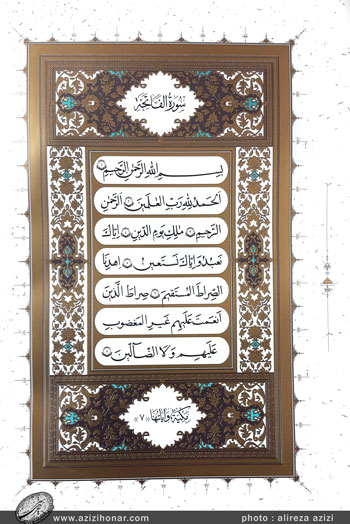 سُورَةُ الفَاتِحَة
بِسْمِ اللهِ الرَّحْمٰنِ الرَّحِيمِ
اَلْحَمْدُ لِلّٰهِ رَبِّ الْعٰلَمِينَ اَلرَّحْمٰنِ
الرَّحِيمِ مٰلِكِ يَوْمِ الدِّينِ اِيَّاكَ
نَعْبُدُ وَ اِيَّاكَ نَسْتَعِينُ اِهْدِنَا
الصِّرَاطَ الْمُسْتَقِيمَ صِرَاطَ الَّذِينَ
اَنْعَمْتَ عَلَيْهِمْ غَيْرِ الْمَغْضُوبِ
عَلَيْهِمْ وَلَا الضَّالِّينَ
مَكِّيَّة وَآيَاتُهَا «٧»
www.azizihonar.com
photo : alireza azizi